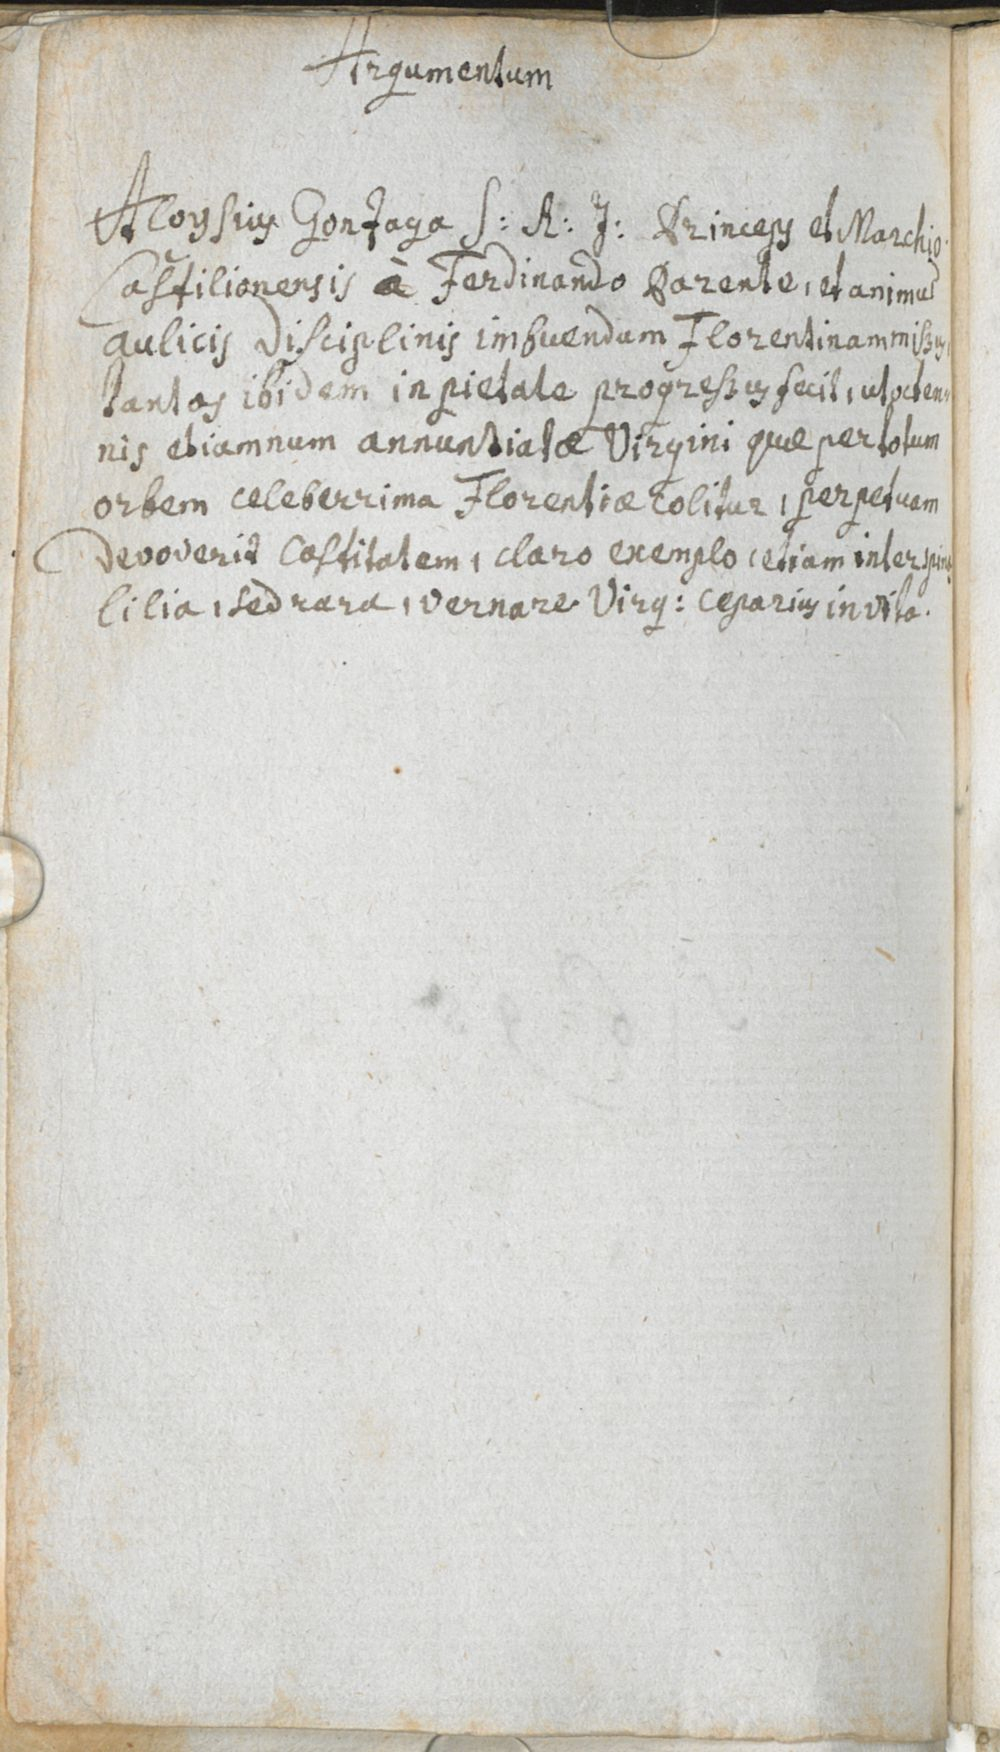 Argumentum
Aloysius Gonzaga S: R: I: Princeps et Marchio
Castilionensis à Ferdinando Parente, et animum
aulicis Disciplinis imbuendum Florentinam missus,
tantos ibidem in pietate progressus fecit, ut octen-
nis etiamnum annuntiatæ Virgini quæ per totum
orbem celeberrima Florentiæ colitur, perpetuam
Devoverit Castitatem, claro exemplo, etiam inter spinas
lilia, sed rara, vernare Virg: Ceparius in vita.